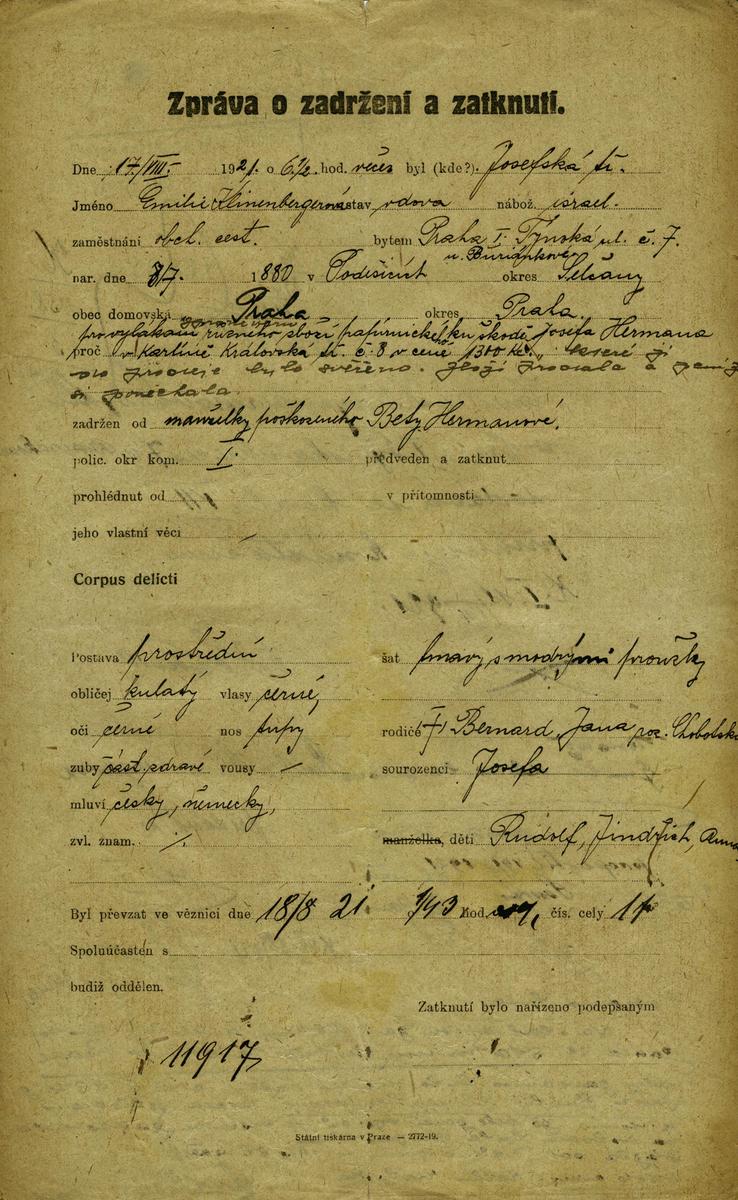 Zpráva o zadržení a zatknutí.
Dne 17/VIII. 1921. o 6 1/2 hod. večer byl (kde?) Josefská tř.
Jméno Emilie Klinenbergerová stav vdova nábož. israel.
zaměstnání obch. cest. bytem Praha I. Týnská ul. č. 7.
u Buriánkové
nar. dne 7. 1880 v okres Selčany
obec domovská Praha okres Praha.
pro vylákání různého zboží papírnického ku škodě Josefa Hermana
proč v Karlíně Královská tř. č. 8 v ceně 1300 Kč., které jí
bylo svěřeno. Zboží prodala a peníze
si ponechala.
zadržen od manželky poškozeného Bety Hermanové.
polic. okr kom. I. předveden a zatknut
prohlédnut od v přítomnosti
jeho vlastní věci
Corpus delicti
Postava prostřední šat tmavý s modrými proužky
obličej kulatý vlasy černé,
oči černé nos tupý rodiče Bernard, Jana roz. Chobotská
zuby část. zdravé vousy — sourozenci Josefa
mluví česky, německy,
zvl. znam. manželka, děti Rudolf, Jindřich, Anna
Byl převzat ve věznici dne 18/8 21 hod. čís. cely 11
Spoluúčasten s
budiž oddělen.
Zatknutí bylo nařízeno podepsaným
11917
Státní tiskárna v Praze — 2772-19.